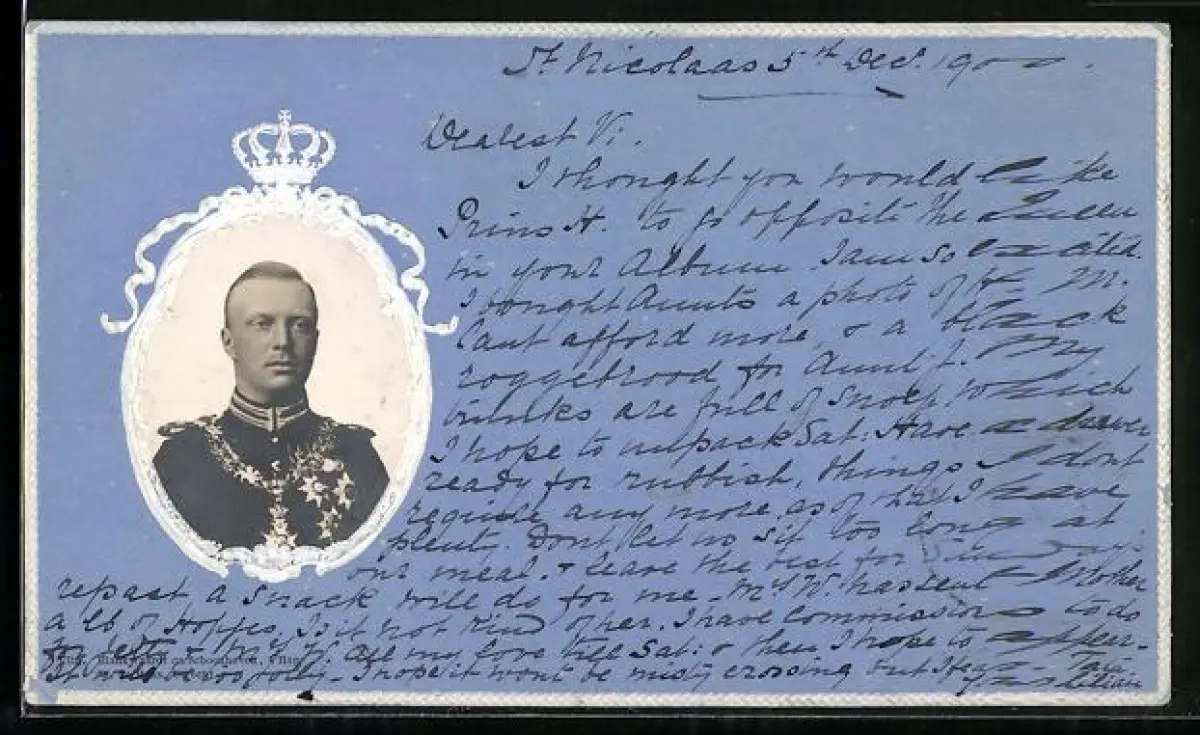 St. Nicolaas 5th Dec. 1900.
Dearest Vi.
I thought you would like
Prins H. to go opposite the Queen
in your Album. I am so excited.
I bought Aunts a photo of H. M.
Cant afford more, & a black
roggebrood for Aunt J. My
trunks are full of snoep, which
I hope to unpack Sat: Have a drawer
ready for rubbish, things I dont
require any more, as of that I have
plenty. Dont let us sit too long at
our meal. & leave the rest for
repast a snack will do for me. Mrs W. has sent Mother
a lb of Hopjes. Is it not kind of her. I have commissions to do
for Jetty & Mrs W. All my love till Sat: & then I hope to appear.
It will be so jolly. I hope it wont be misty crossing but I
Lilian